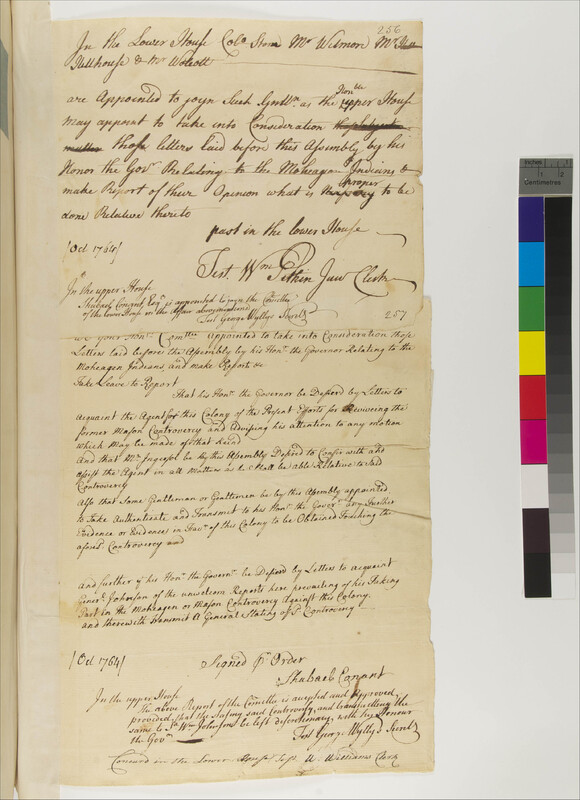 256
In the Lower House Colo. Storr Mr Wetmore Mr
Hillhouse & Mr Wolcott
are Appointed to joyn Such Gentlmn as the Honble upper House
May appoint to take into Consideration
those letters laid before this Assembly by his
Honor the Govr. Relating to the Moheagan Indians &
make Report of their Opinion what is proper to be
done Relative thereto
past in the lower House
[Oct 1764]
Test. Wm Pitkin Junr Clerk
In the upper House
Shubael Conant, Esqr is appointed to joyn the Comtee
of the lower House in the affair abovementioned
Test George Wyllys Secrety
257
We your Honrs. Comttee appointed to take into Consideration those
Letters laid before the Assembly by his Honr. the Governor Relating to the
Moheagan Indians, and make Report &c
Take Leave to Report
That his Honr. the Governor be Desired by Letters to
acquaint the Agent of this Colony of the Present Efforts for Reviveing the
former Mason Controversy and Advising his attention to any motion
which May be made of that Kind
And that Mr. Ingersol be by this Assembly Desired to Confer with and
assist the Agent in all Matters as he shall be able Relative to Said
Controversy
Also that Some Gentleman or Gentlemen be by this Assembly appointed
to Take Authenticate and Transmit to his Honr. the Governr. any Further
Evidence or Evidences in Favr. of this Colony to be Obtained Touching the
aforesd. Controversy
And further yt his Honr. the Governr. be Desired by Letters to acquaint
Generl. Johnson of the unwelcom Reports here prevailing of his Taking
Part in the Mohegan or Mason Controversy Against this Colony.
and therewith Transmit A General Stating of sd Controversy
[Oct 1764]
Signed pr. Order
Shubael Conant
In the upper House
The above Report of the Comttee is accepted and Approved
provided, that the Stating said Controversy, and transmitting the
same to Sr. Wm Johnson be left discretionary, with his Honour
the Govr.
Test George Wyllys Secrety
Concurd in the Lower House Test W. Williams Clerk
Inches
Centimetres